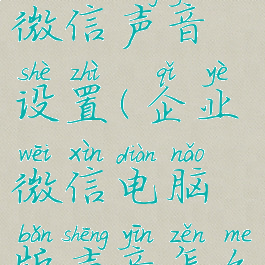 微信声音
shè zhì qǐ yè
设置(企业
wēi xìn diàn nǎo
微信电脑
bǎn shēng yīn zěn me
版声音怎么